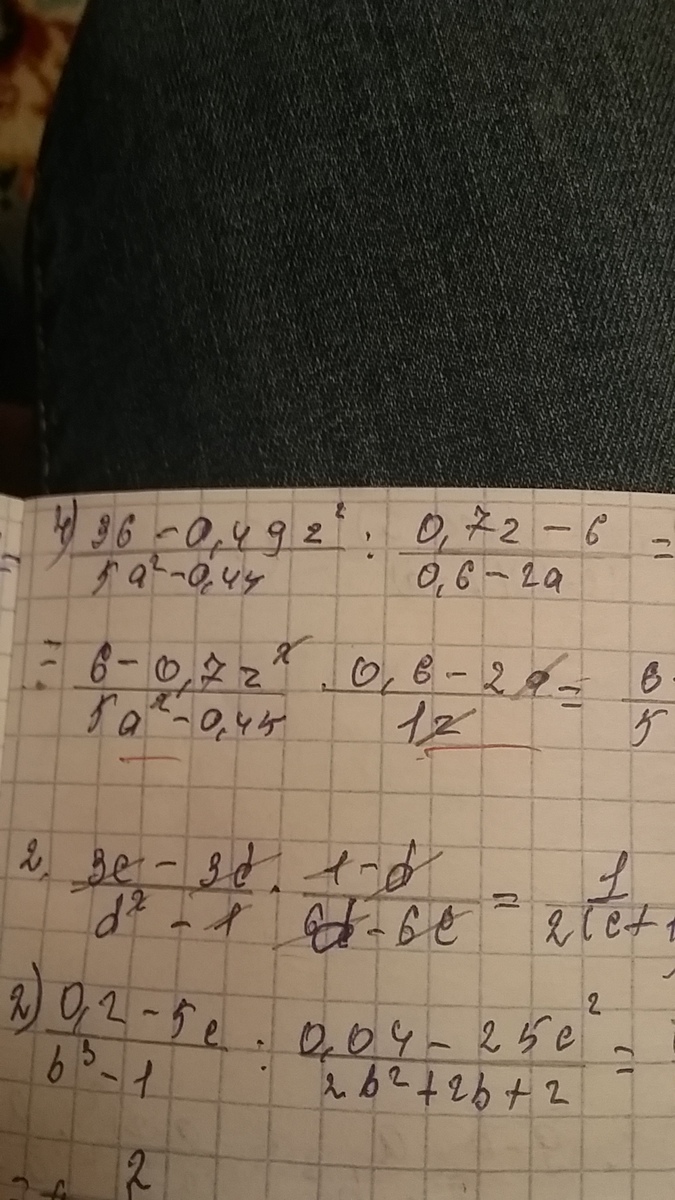 4) (36 - 0,49z²)/(5a² - 0,45) : (0,7z - 6)/(0,6 - 2a) =
= (6 - 0,7z²)/(5a² - 0,45) · (0,6 - 2a)/(1z) = 6/5
2. (3c - 3d)/(d² - 1) · (1 - d)/(6d - 6c) = 1/(2(c+1
2) (0,2 - 5c)/(b³ - 1) : (0,04 - 25c²)/(2b² + 2b + 2) =
2